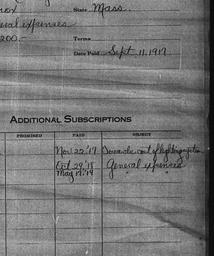 State Mass.
General expenses
200.-
Terms
Date Paid Sept. 11, 1917
ADDITIONAL SUBSCRIPTIONS
PROMISED PAID OBJECT
Nov 22 '17 Towards cost of
Oct 29 '18 General expenses
May 19 '19